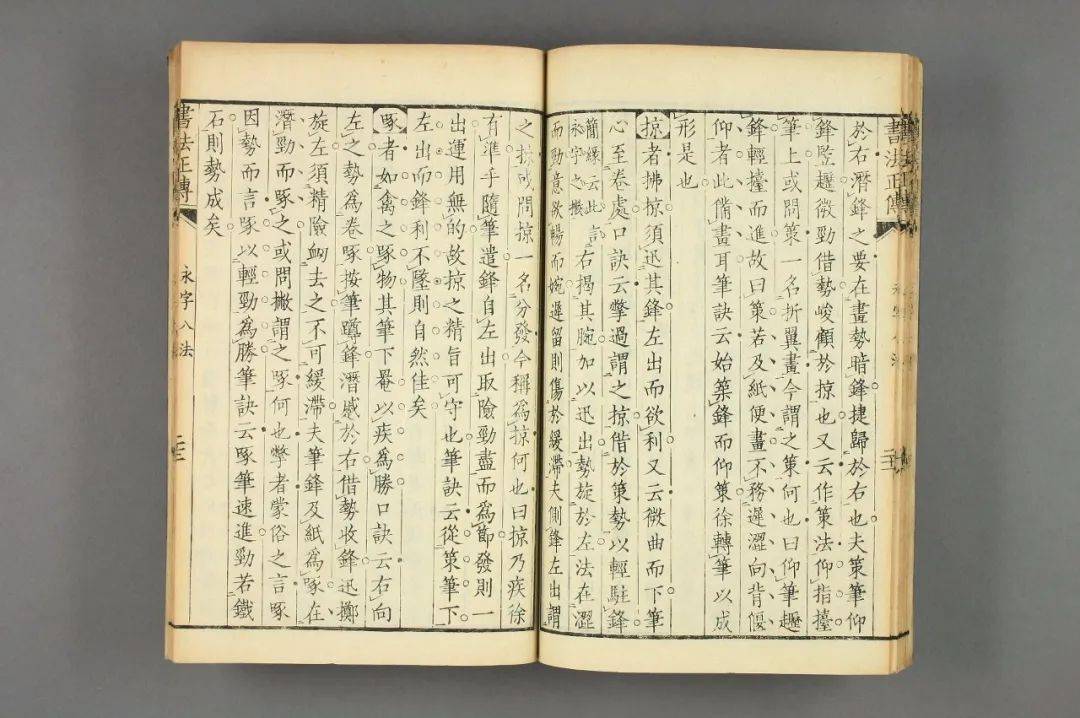 書法正傳
於右潛鋒之要在畫勢暗鋒捷歸於右也夫策筆仰
鋒豎趯微勁借勢峻顧於掠也又云作策法仰指擡
筆上或問策一名折翼畫今謂之策何也曰仰筆趯
鋒輕擡而進故曰策若及紙便畫不務遲澀向背偃
仰者此備畫耳筆訣云始築鋒而仰策徐轉筆以成
形是也
掠者拂掠須迅其鋒左出而欲利又云微曲而下筆
心至卷處口訣云撆過謂之掠借於策勢以輕駐鋒
簡緣云此言
永字之撇
右揭其腕加以迅出勢旋於左法在澀
而勁意欲暢而婉遲留則傷於緩滯夫側鋒左出謂
之掠或問掠一名分發今稱為掠何也曰掠乃疾徐
有準乎隨筆遣鋒自左出取險勁盡而為節發則一
出運用無的故掠之精旨可守也筆訣云從策筆下
左出而鋒利不墜則自然佳矣
啄者如禽之啄物其筆下罨以疾為勝口訣云右向
左之勢為卷啄按筆蹲鋒潛蹙於右借勢收鋒迅擲
旋左須精險衂去之不可緩滯夫筆鋒及紙為啄在
潛勁而啄之或問撇謂之啄何也撆者蒙俗之言啄
因勢而言啄以輕勁為勝筆訣云啄筆速進勁若鐵
石則勢成矣
書法正傳
永字八法